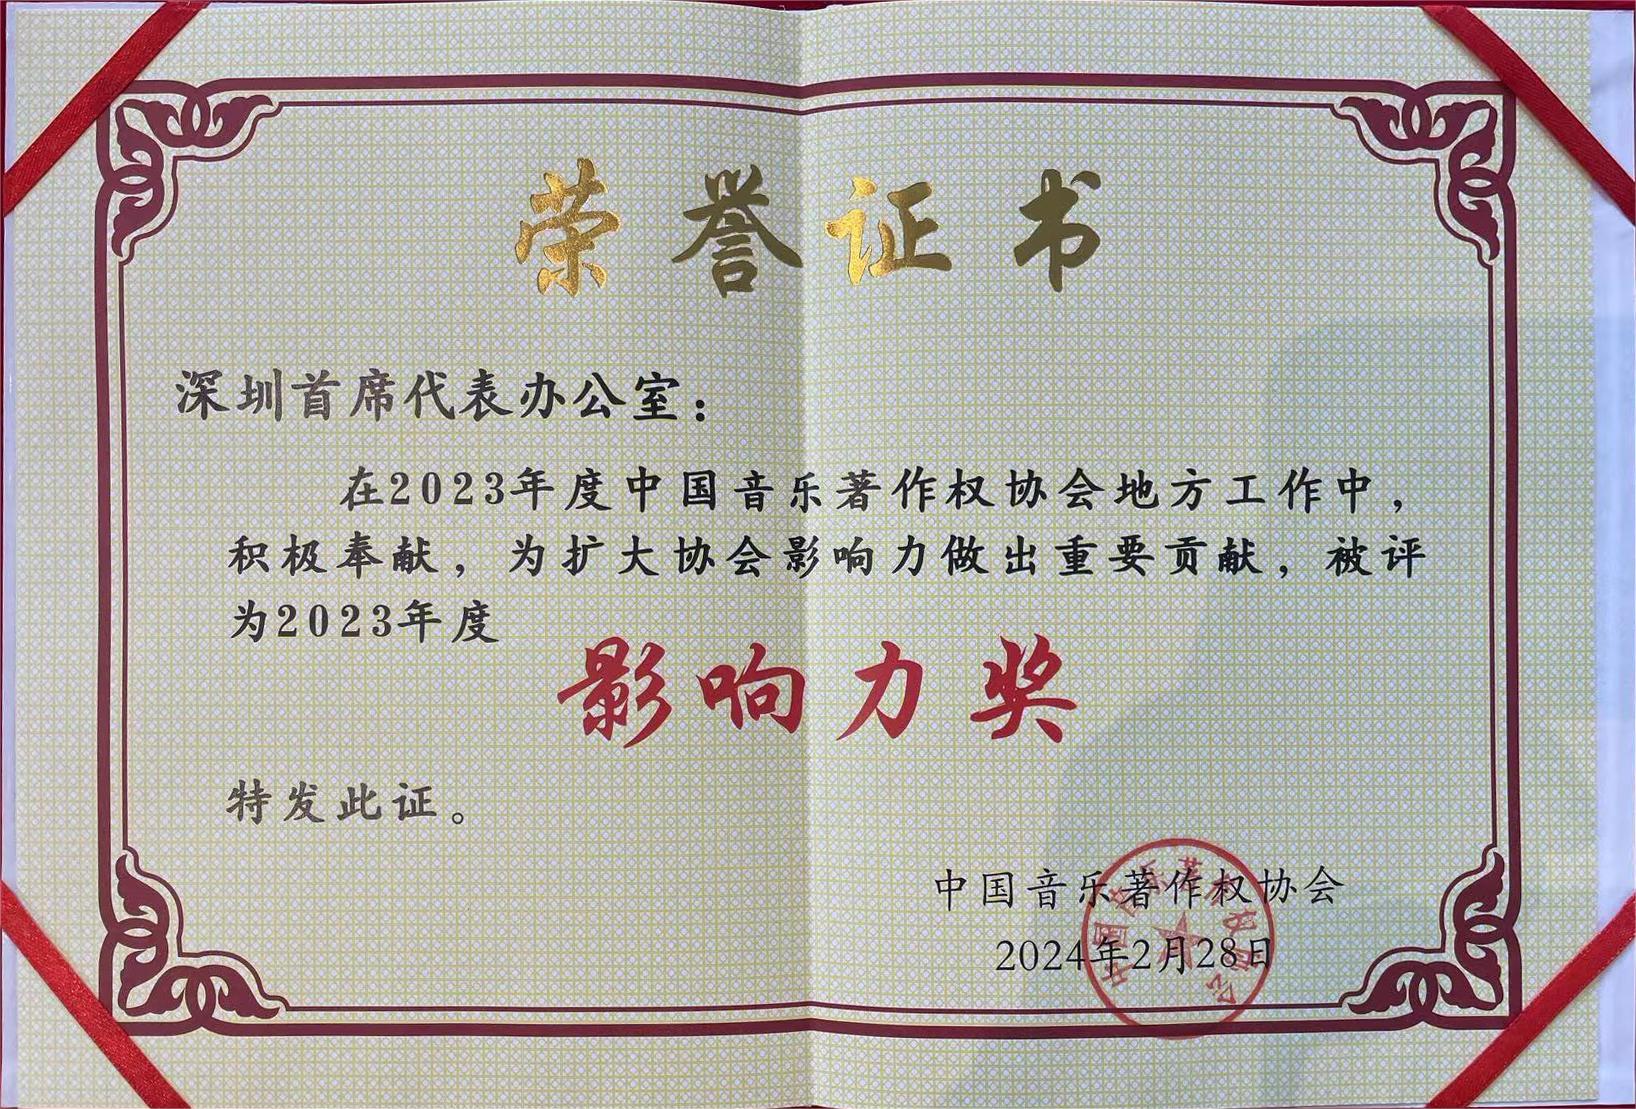 荣誉证书
深圳首席代表办公室：
在2023年度中国音乐著作权协会地方工作中，
积极奉献，为扩大协会影响力做出重要贡献，被评
为2023年度
影响力奖
特发此证。
中国音乐著作权协会
2024年2月28日
中国音乐著作权协会